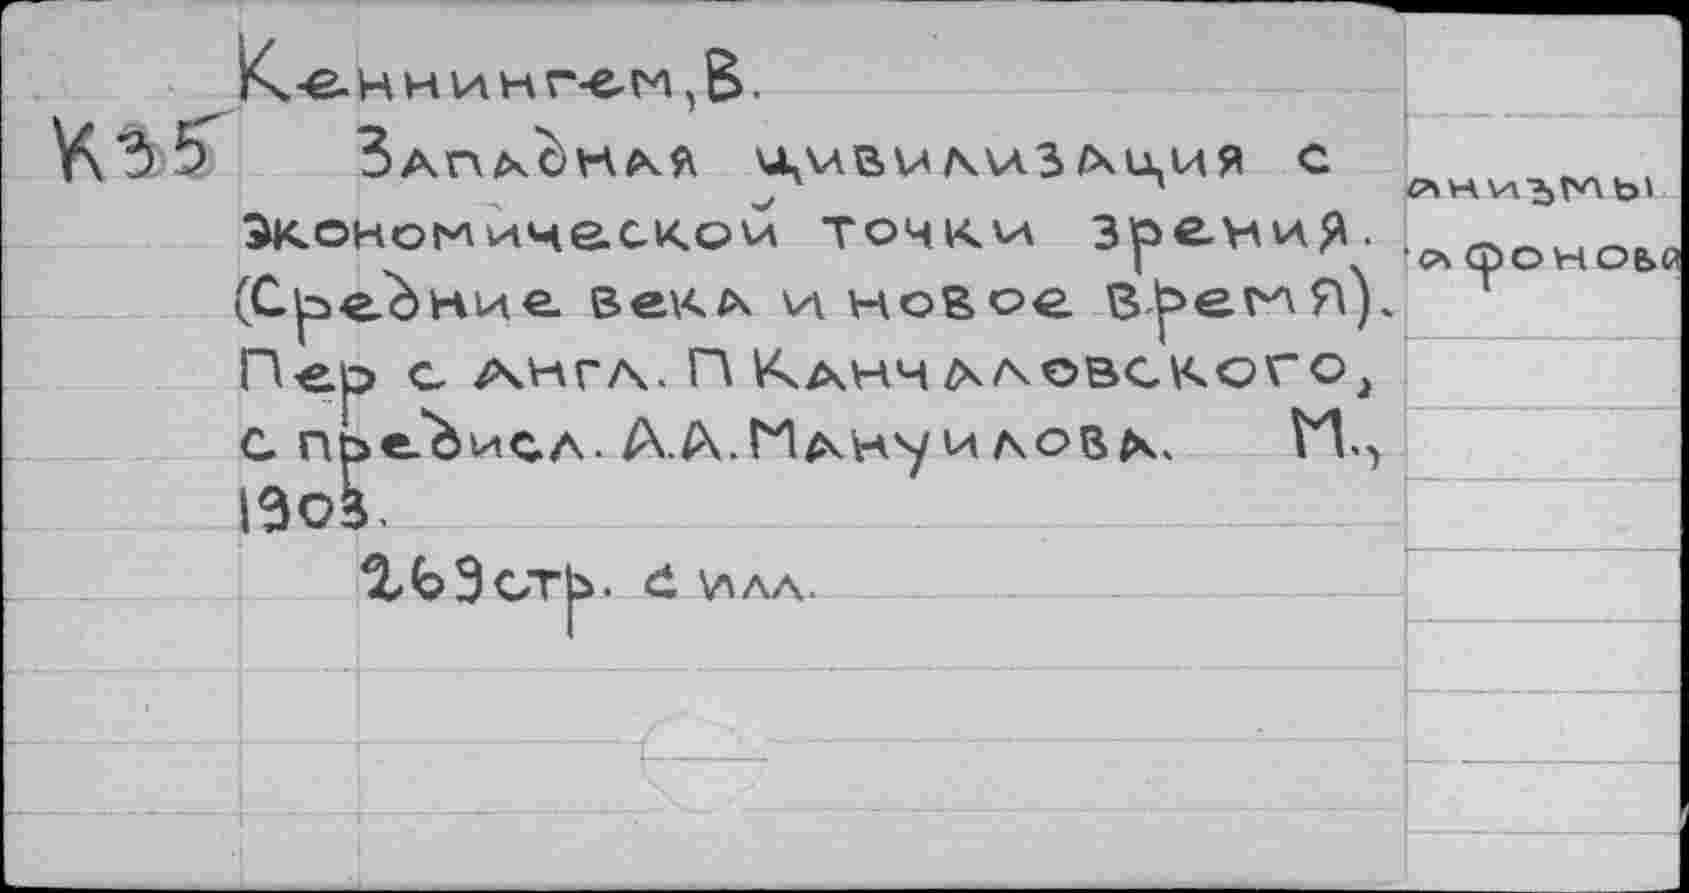 Кеннингем, В.
К35 Западная цивилизация с
экономической точки зрения.
(Средние века и новое время).
Пер с англ. П Канчаловского,
с предисл. А.А. Мануилова. М.,
1903.
263 стр. с илл.
низмы
фонов